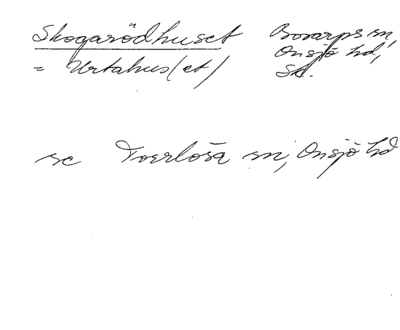 Skogarödhuset Bosarps sn,
= Urtahus(et) Onsjö hd,
Sk.
se Torrlösa sn, Onsjö hd